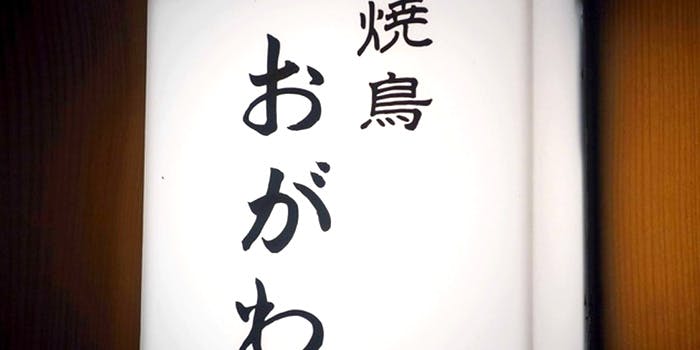 焼鳥
おがわ